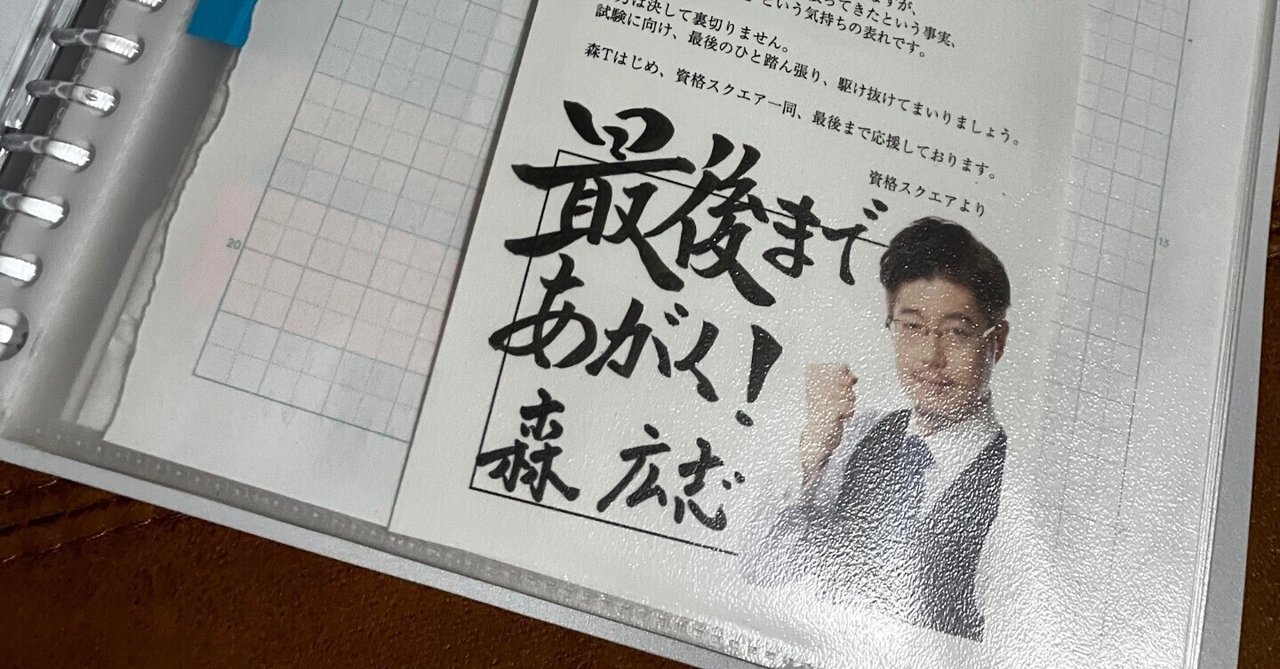 ってきたという事実、
という気持ちの表れです。
は決して裏切りません。
試験に向け、最後のひと踏ん張り、駆け抜けてまいりましょう。
森Tはじめ、資格スクエア一同、最後まで応援しております。
資格スクエアより
最後まで
あがく!
森 広志
20
13